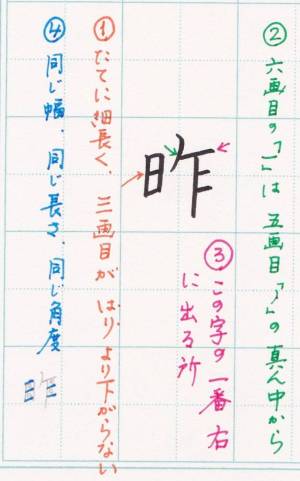 ②六画目の「一」は五画目「ノ」の真ん中から
③この字の一番右
に出る所
昨
①たてに細長く、三画目がはりより下がらない
④同じ幅、同じ長さ、同じ角度
昨